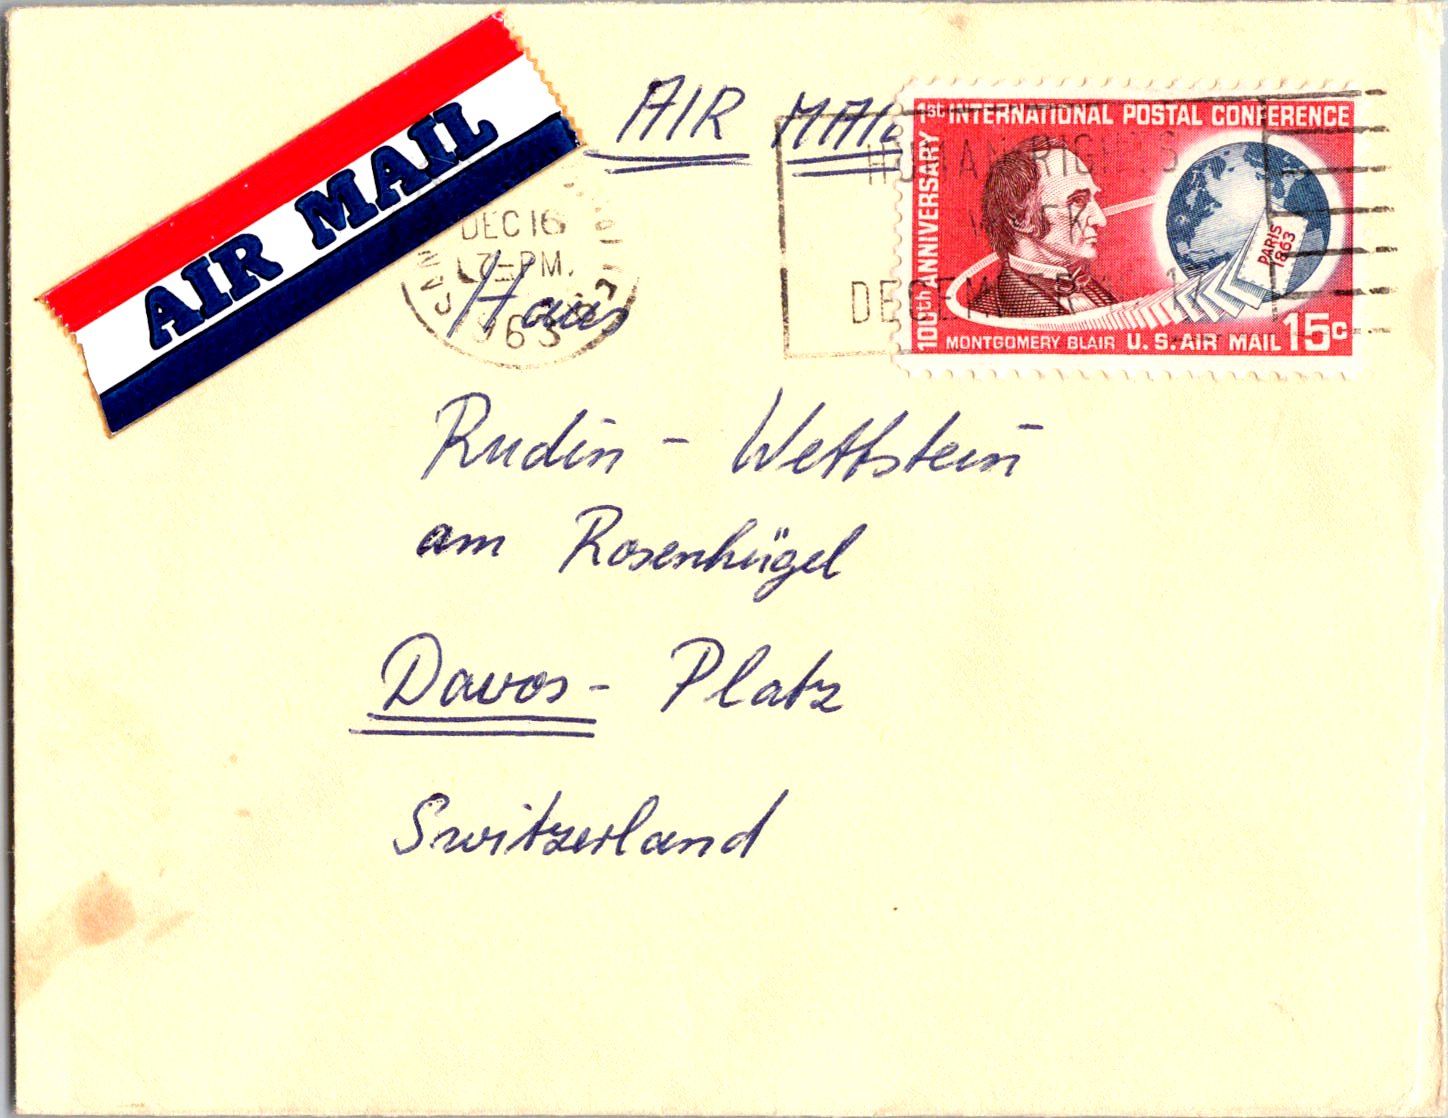 AIR MAIL
AIR MAIL
DEC 16
PM
1963
HUMAN RIGHTS
WEEK
DECEMBER 17
1st INTERNATIONAL POSTAL CONFERENCE
100th ANNIVERSARY
PARIS
1863
MONTGOMERY BLAIR U.S. AIR MAIL 15c
Haus
Rudin - Wettstein
am Rosenhügel
Davos - Platz
Switzerland